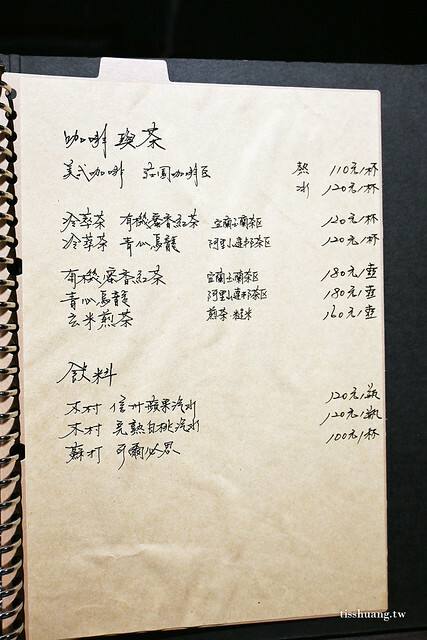 咖啡與茶
美式咖啡 莊園咖啡豆 熱 110元/杯
冰 120元/杯
冷萃茶 有機蜜香紅茶 宜蘭玉蘭茶區 120元/杯
冷萃茶 青心烏龍 阿里山達邦茶區 120元/杯
有機蜜香紅茶 宜蘭玉蘭茶區 180元/壺
青心烏龍 阿里山達邦茶區 180元/壺
玄米煎茶 煎茶 糙米 160元/壺
飲料
木村 信州蘋果汽水 120元/瓶
木村 完熟白桃汽水 120元/瓶
蘇打 可爾必思 100元/杯
tisshuang.tw